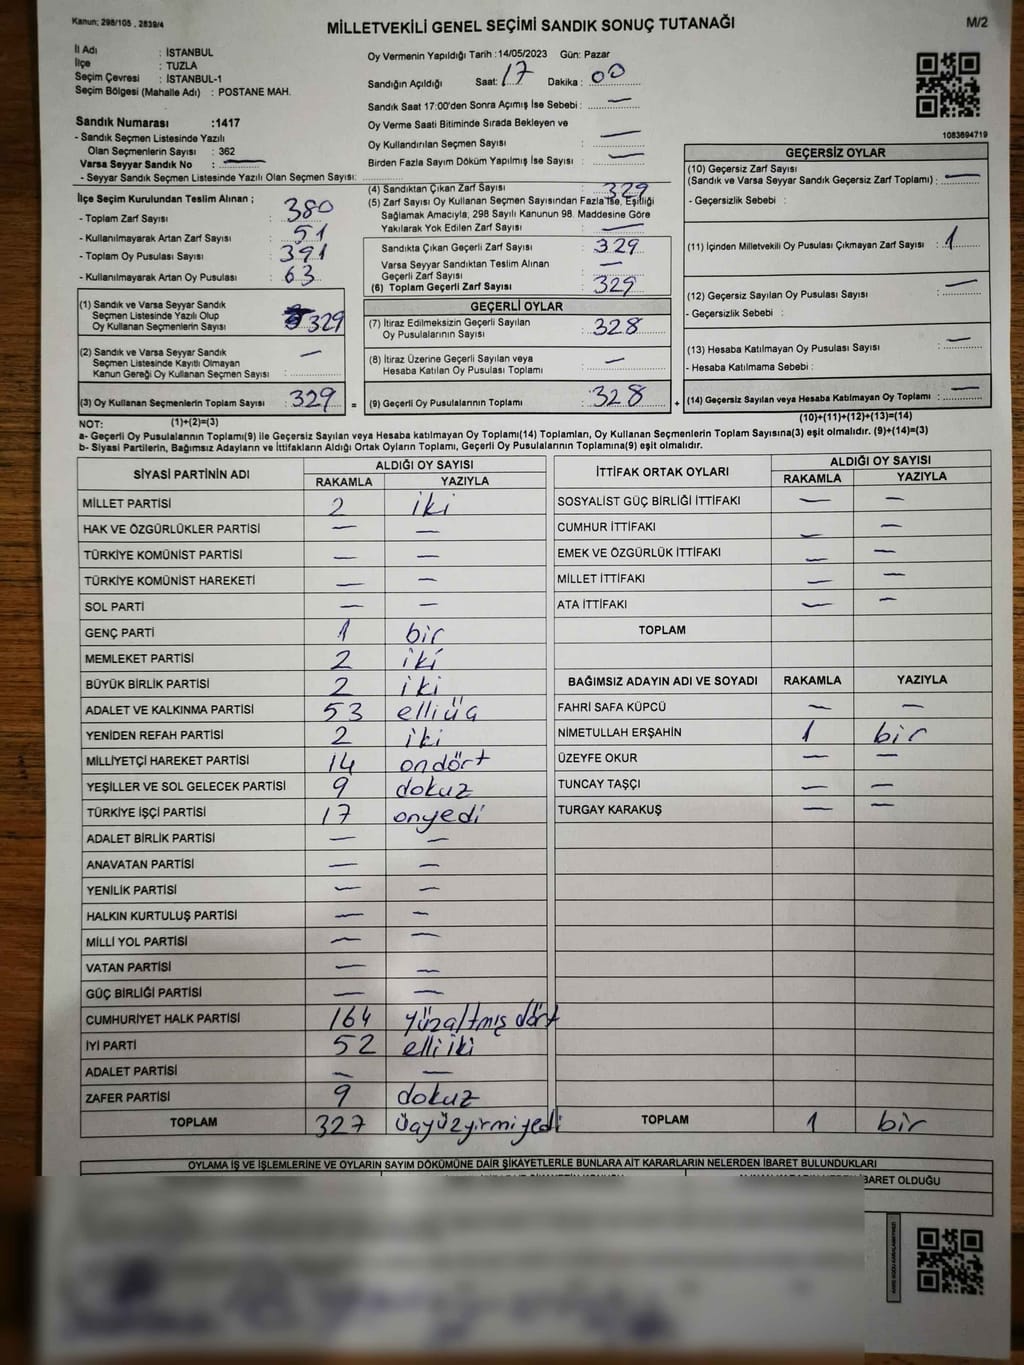 Kanun; 298/105 , 2839/4
MİLLETVEKİLİ GENEL SEÇİMİ SANDIK SONUÇ TUTANAĞI
M/2
İl Adı : İSTANBUL
İlçe : TUZLA
Seçim Çevresi : İSTANBUL-1
Seçim Bölgesi (Mahalle Adı) : POSTANE MAH.
Oy Vermenin Yapıldığı Tarih :14/05/2023 Gün: Pazar
Sandığın Açıldığı Saat: 17 Dakika : 00
Sandık Saat 17:00'den Sonra Açımış İse Sebebi : —
Oy Verme Saati Bitiminde Sırada Bekleyen ve
Oy Kullandırılan Seçmen Sayısı : —
Birden Fazla Sayım Döküm Yapılmış İse Sayısı : —
1083694719
Sandık Numarası :1417
- Sandık Seçmen Listesinde Yazılı
Olan Seçmenlerin Sayısı : 362
Varsa Seyyar Sandık No : —
- Seyyar Sandık Seçmen Listesinde Yazılı Olan Seçmen Sayısı:
İlçe Seçim Kurulundan Teslim Alınan ;
- Toplam Zarf Sayısı : 380
- Kullanılmayarak Artan Zarf Sayısı : 51
- Toplam Oy Pusulası Sayısı : 391
- Kullanılmayarak Artan Oy Pusulası : 63
(1) Sandık ve Varsa Seyyar Sandık
Seçmen Listesinde Yazılı Olup
Oy Kullanan Seçmenlerin Sayısı : 329
(2) Sandık ve Varsa Seyyar Sandık
Seçmen Listesinde Kayıtlı Olmayan
Kanun Gereği Oy Kullanan Seçmen Sayısı : —
(3) Oy Kullanan Seçmenlerin Toplam Sayısı : 329 =
(4) Sandıktan Çıkan Zarf Sayısı : 329
(5) Zarf Sayısı Oy Kullanan Seçmen Sayısından Fazla İse, Eşitliği
Sağlamak Amacıyla, 298 Sayılı Kanunun 98. Maddesine Göre
Yakılarak Yok Edilen Zarf Sayısı : —
Sandıkta Çıkan Geçerli Zarf Sayısı : 329
Varsa Seyyar Sandıktan Teslim Alınan
Geçerli Zarf Sayısı : —
(6) Toplam Geçerli Zarf Sayısı : 329
GEÇERLİ OYLAR
(7) İtiraz Edilmeksizin Geçerli Sayılan
Oy Pusulalarının Sayısı : 328
(8) İtiraz Üzerine Geçerli Sayılan veya
Hesaba Katılan Oy Pusulası Toplamı : —
(9) Geçerli Oy Pusulalarının Toplamı : 328 +
GEÇERSİZ OYLAR
(10) Geçersiz Zarf Sayısı
(Sandık ve Varsa Seyyar Sandık Geçersiz Zarf Toplamı) : —
- Geçersizlik Sebebi :
(11) İçinden Milletvekili Oy Pusulası Çıkmayan Zarf Sayısı : 1
(12) Geçersiz Sayılan Oy Pusulası Sayısı : —
- Geçersizlik Sebebi :
(13) Hesaba Katılmayan Oy Pusulası Sayısı : —
- Hesaba Katılmama Sebebi :
(14) Geçersiz Sayılan veya Hesaba Katılmayan Oy Toplamı : —
NOT: (1)+(2)=(3) (10)+(11)+(12)+(13)=(14)
a- Geçerli Oy Pusulalarının Toplamı(9) ile Geçersiz Sayılan veya Hesaba katılmayan Oy Toplamı(14) Toplamları, Oy Kullanan Seçmenlerin Toplam Sayısına(3) eşit olmalıdır. (9)+(14)=(3)
b- Siyasi Partilerin, Bağımsız Adayların ve İttifakların Aldığı Oyların Toplamı, Geçerli Oy Pusulalarının Toplamına(9) eşit olmalıdır.
SİYASİ PARTİNİN ADI ALDIĞI OY SAYISI
RAKAMLA YAZIYLA
MİLLET PARTİSİ 2 iki
HAK VE ÖZGÜRLÜKLER PARTİSİ — —
TÜRKİYE KOMÜNİST PARTİSİ — —
TÜRKİYE KOMÜNİST HAREKETİ — —
SOL PARTİ — —
GENÇ PARTİ 1 bir
MEMLEKET PARTİSİ 2 iki
BÜYÜK BİRLİK PARTİSİ 2 iki
ADALET VE KALKINMA PARTİSİ 53 elli üç
YENİDEN REFAH PARTİSİ 2 iki
MİLLİYETÇİ HAREKET PARTİSİ 14 ondört
YEŞİLLER VE SOL GELECEK PARTİSİ 9 dokuz
TÜRKİYE İŞÇİ PARTİSİ 17 onyedi
ADALET BİRLİK PARTİSİ — —
ANAVATAN PARTİSİ — —
YENİLİK PARTİSİ — —
HALKIN KURTULUŞ PARTİSİ — —
MİLLİ YOL PARTİSİ — —
VATAN PARTİSİ — —
GÜÇ BİRLİĞİ PARTİSİ — —
CUMHURİYET HALK PARTİSİ 164 yüzaltmış dört
İYİ PARTİ 52 elli iki
ADALET PARTİSİ — —
ZAFER PARTİSİ 9 dokuz
TOPLAM 327 üçyüzyirmiyedi
İTTİFAK ORTAK OYLARI ALDIĞI OY SAYISI
RAKAMLA YAZIYLA
SOSYALİST GÜÇ BİRLİĞİ İTTİFAKI — —
CUMHUR İTTİFAKI — —
EMEK VE ÖZGÜRLÜK İTTİFAKI — —
MİLLET İTTİFAKI — —
ATA İTTİFAKI — —
TOPLAM
BAĞIMSIZ ADAYIN ADI VE SOYADI RAKAMLA YAZIYLA
FAHRİ SAFA KÜPCÜ — —
NİMETULLAH ERŞAHİN 1 bir
ÜZEYFE OKUR — —
TUNCAY TAŞÇI — —
TURGAY KARAKUŞ — —
TOPLAM 1 bir
OYLAMA İŞ VE İŞLEMLERİNE VE OYLARIN SAYIM DÖKÜMÜNE DAİR ŞİKAYETLERLE BUNLARA AİT KARARLARIN NELERDEN İBARET BULUNDUKLARI
İBARET OLDUĞU